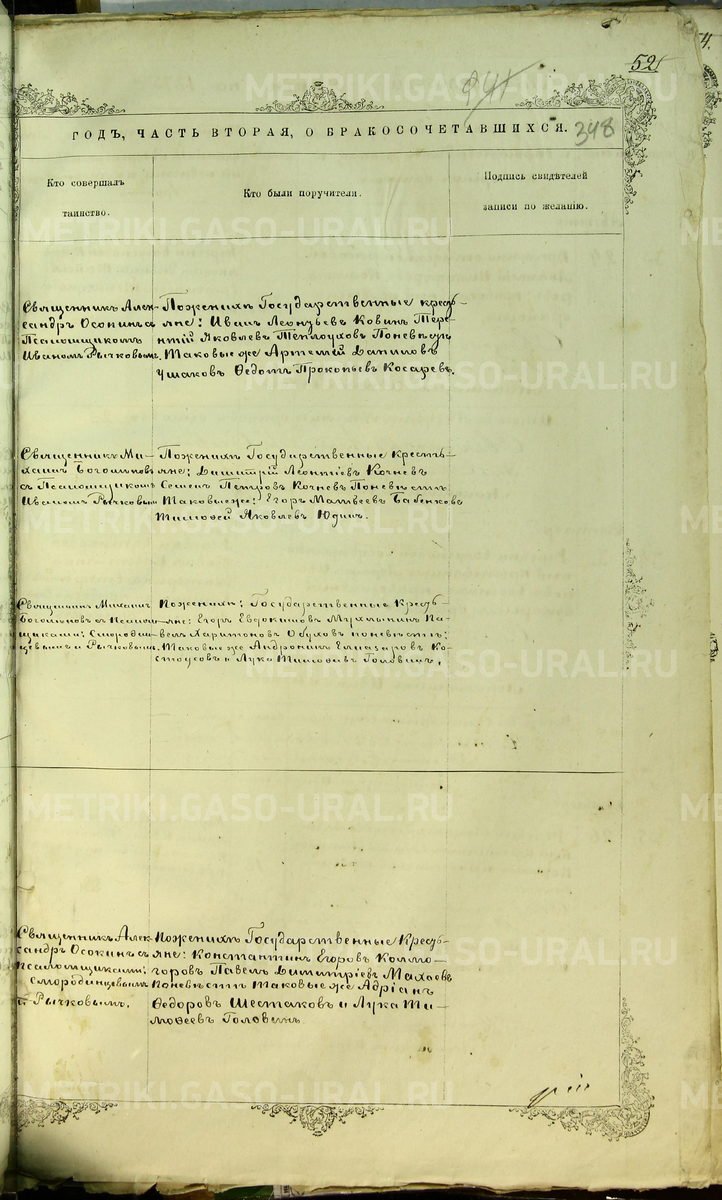 4.
52
348
ГОДЪ, ЧАСТЬ ВТОРАЯ, О БРАКОСОЧЕТАВШИХСЯ.
Кто совершалъ
таинство.
Кто были поручители.
Подпись свидѣтелей
записи по желанію.
Священникъ Алек-
сандръ Осокинъ съ
Псаломщикомъ
Иваномъ Рычковымъ.
Поженихѣ Государственные кресть-
яне: Иванъ Леонтьевъ Ковинъ Тере-
нтій Яковлевъ Теплоуховъ Поневѣстѣ
Таковые же Артемій Даниловъ
Ушаковъ Ѳедотъ Прокопьевъ Косаревъ.
Священникъ Ми-
хаилъ Богомоловъ
съ Псаломщикомъ
Иваномъ Рычковымъ
Поженихѣ Государственные Кресть-
яне: Димитрій Леонтіевъ Кочневъ
Семенъ Петровъ Кочневъ Поневѣстѣ
Таковые же: Егоръ Матвеевъ Бабенковъ
Тимоѳей Яковлевъ Юдинъ.
Священникъ Михаилъ
Богомоловъ съ Псалом-
щиками: Смородин-
цевымъ и Рычковымъ.
Поженихѣ: Государственные Кресть-
яне: Егоръ Евдокимовъ Мухлынинъ Па-
велъ Харитоновъ Обуховъ поневѣстѣ:
Таковые же Андроникъ Елиазаровъ Ко-
стоусовъ и Лука Тимоѳеевъ Головинъ.
Священникъ Алек-
сандръ Осокинъ съ
псаломщиками:
Смородинцевымъ
и Рычковымъ.
Поженихѣ Государственные Кресть-
яне: Константинъ Егоровъ Колмо-
горовъ Павелъ Димитріевъ Махаевъ
Поневѣстѣ Таковые же Адріанъ
Ѳедоровъ Шестаковъ и Лука Ти-
моѳеевъ Головинъ
METRIKI.GASO-URAL.RU